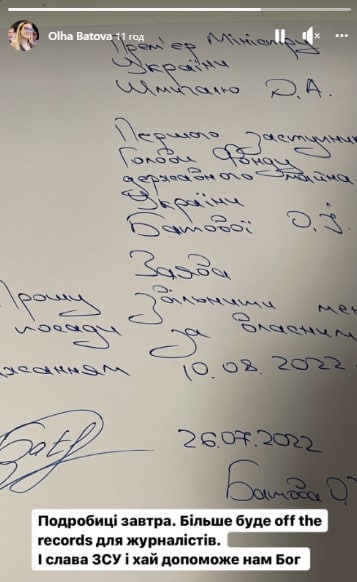 Olha Batova 11 год
Прем'єр Міністру
України
Шмигалю Д.А.
Першого Заступник
Голови Фонду
державного майна
України
Батової О.І.
Заява
Прошу Звільнити мен
посади за власним
жанням 10.08.2022
26.07.2022
Батова О.
Подробиці завтра. Більше буде off the
records для журналістів.
І слава ЗСУ і хай допоможе нам Бог